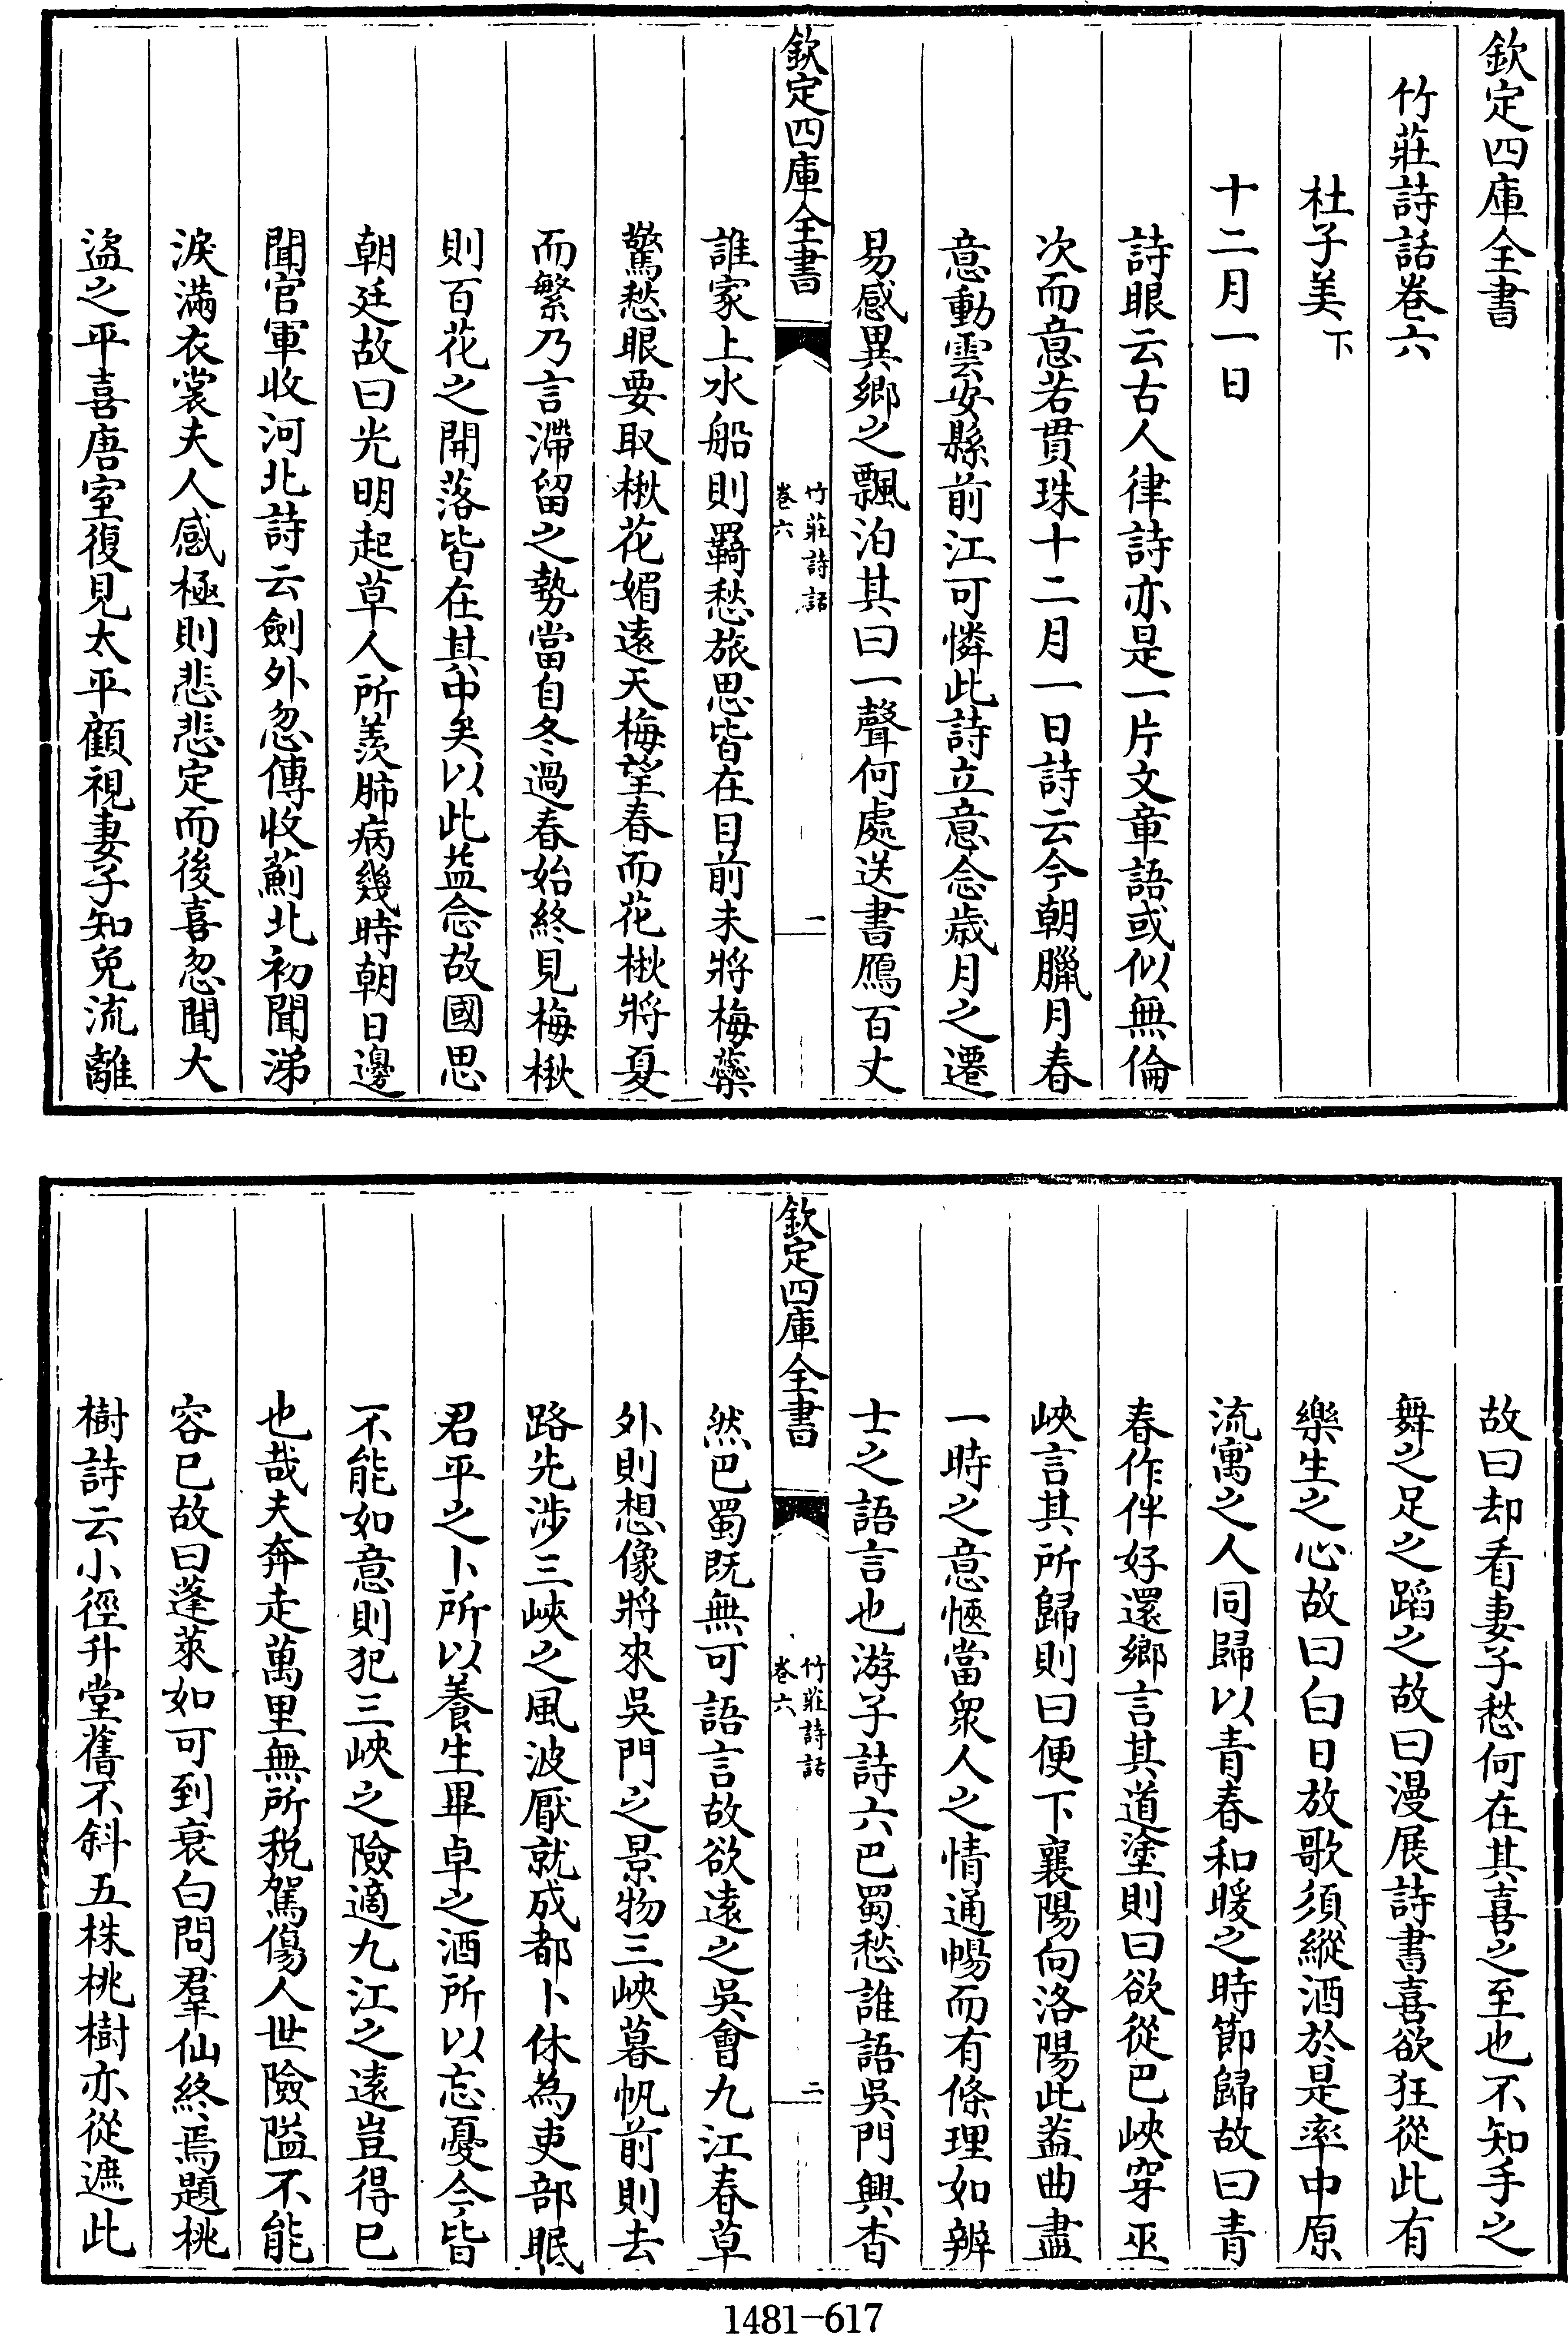 欽定四庫全書
竹莊詩話卷六
杜子美下
十二月一日
詩眼云古人律詩亦是一片文章語或似無倫
次而意若貫珠十二月一日詩云今朝臘月春
意動雲安縣前江可憐此詩立意念歲月之遷
易感異鄉之飄泊其曰一聲何處送書鴈百丈
欽定四庫全書
竹莊詩話
卷六
一
誰家上水船則羇愁旅思皆在目前未將梅蘂
驚愁眼要取楸花媚遠天梅望春而花楸將夏
而繁乃言滯留之勢當自冬過春始終見梅楸
則百花之開落皆在其中矣以此益念故國思
朝廷故曰光明起草人所羨肺病幾時朝日邊
聞官軍收河北詩云劍外忽傳收薊北初聞涕
淚滿衣裳夫人感極則悲悲定而後喜忽聞大
盜之平喜唐室復見太平顧視妻子知免流離
故曰却看妻子愁何在其喜之至也不知手之
舞之足之蹈之故曰漫展詩書喜欲狂從此有
樂生之心故曰白日放歌須縱酒於是率中原
流寓之人同歸以青春和暖之時節歸故曰青
春作伴好還鄉言其道塗則曰欲從巴峽穿巫
峽言其所歸則曰便下襄陽向洛陽此蓋曲盡
一時之意愜當衆人之情通暢而有條理如辨
士之語言也游子詩六巴蜀愁誰語吳門興杳
欽定四庫全書
竹莊詩話
卷六
二
然巴蜀既無可語言故欲遠之吳會九江春草
外則想像將來吳門之景物三峽暮帆前則去
路先涉三峽之風波厭就成都卜休為吏部眠
君平之卜所以養生畢卓之酒所以忘憂今皆
不能如意則犯三峽之險適九江之遠豈得已
也哉夫奔走萬里無所税駕傷人世險隘不能
容已故曰蓬萊如可到衰白問羣仙終焉題桃
樹詩云小徑升堂舊不斜五株桃樹亦從遮此
1481-617